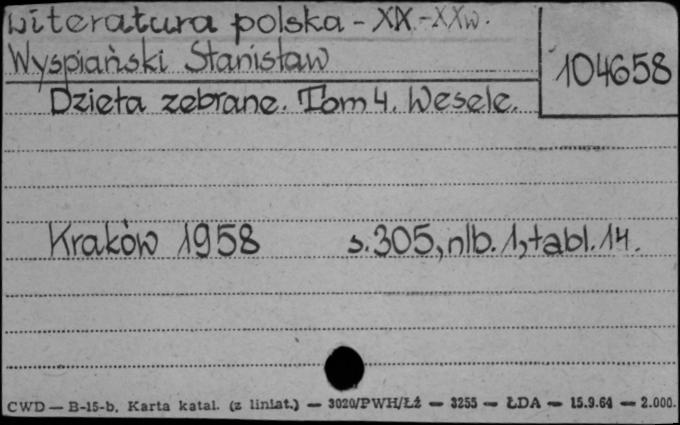 Literatura polska - XX.-XXw.
Wyspiański Stanisław
104658
Dzieła zebrane. Tom 4. Wesele.
Kraków 1958 s.305,nlb.1,tabl.14.
CWD — B-15-b. Karta katal. (z liniat.) — 3020/PWH/Łź — 3255 — ŁDA — 15.9.64 — 2.000.